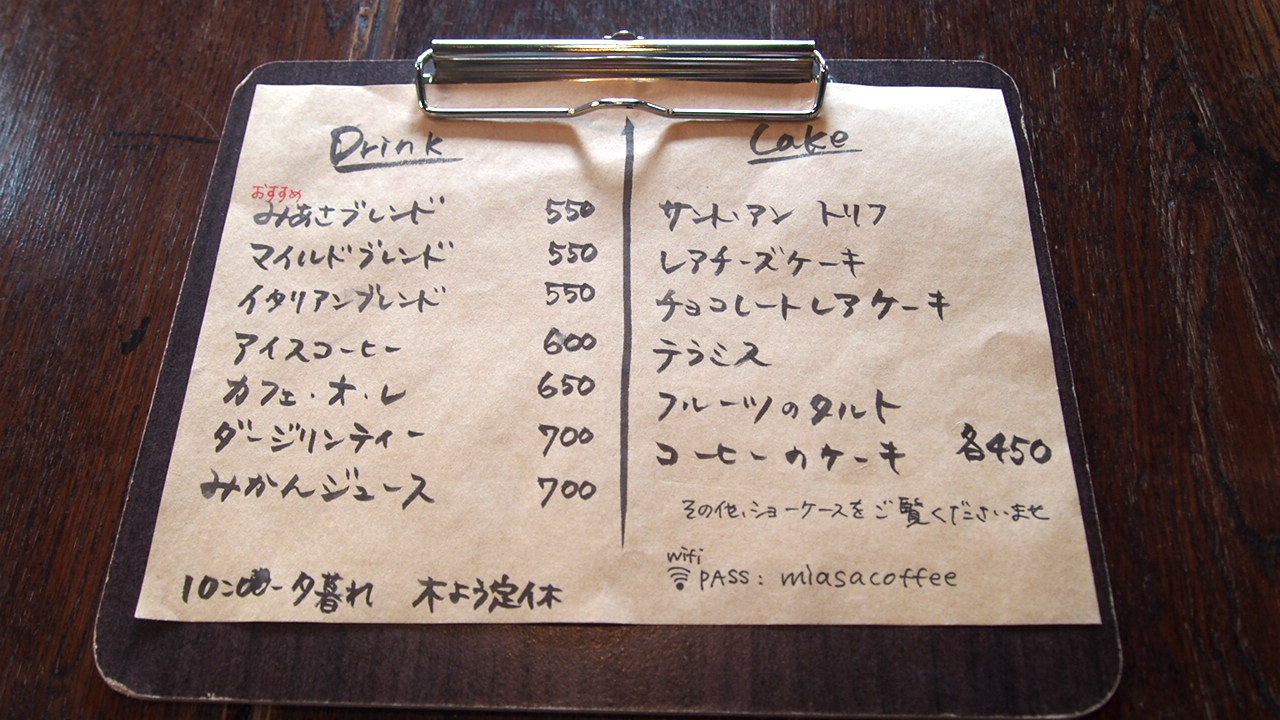 Drink
おすすめ
みあさブレンド 550
マイルドブレンド 550
イタリアンブレンド 550
アイスコーヒー 600
カフェ・オ・レ 650
ダージリンティー 700
みかんジュース 700
10:00-夕暮れ 木よう定休
Cake
サント・アン トリフ
レアチーズケーキ
チョコレートレアケーキ
テラミス
フルーツのタルト
コーヒーのケーキ 各450
その他、ショーケースをご覧くださいませ
wifi
PASS: miasacoffee